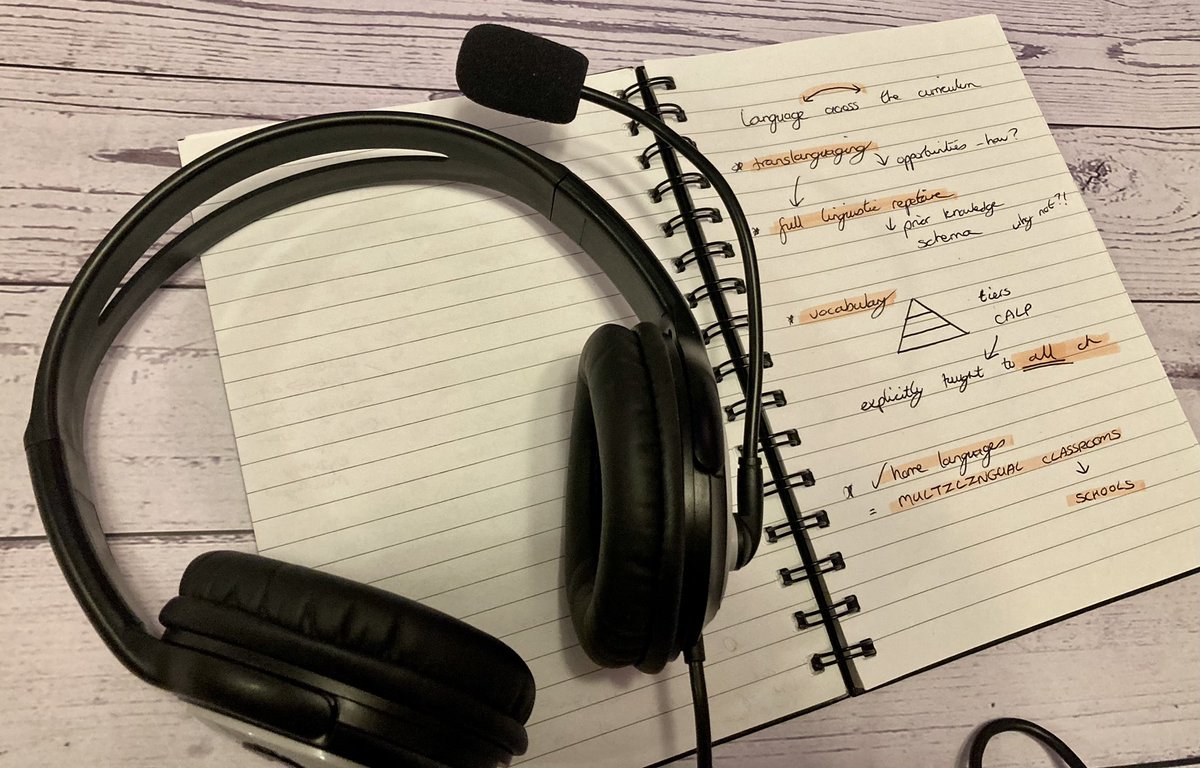 Language across the curriculum
* translanguaging ↓ opportunities - how?
↓
* full linguistic repetoire
↓ prior knowledge
schema why not?!
* vocabulary tiers
CALP
↓
explicitly taught to all ch
* ✓ home languages
= MULTILINGUAL CLASSROOMS
↓
SCHOOLS